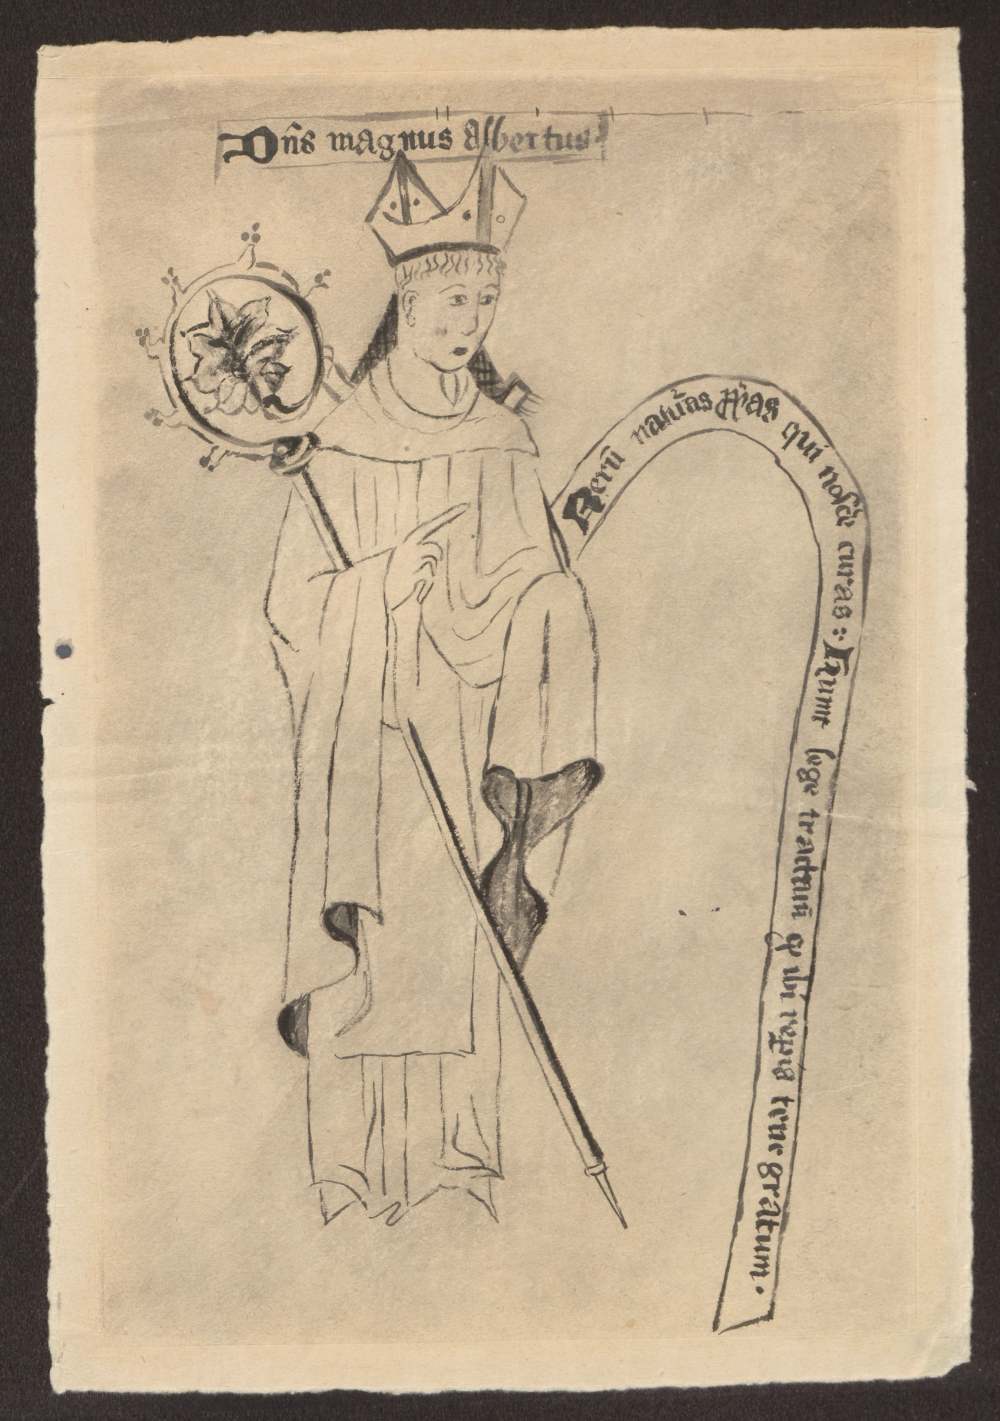 Dn̄s magnus albertus
Rerū natūas qui nosc̄e curas : Hunc lege tractatū q ibi tene gratum .